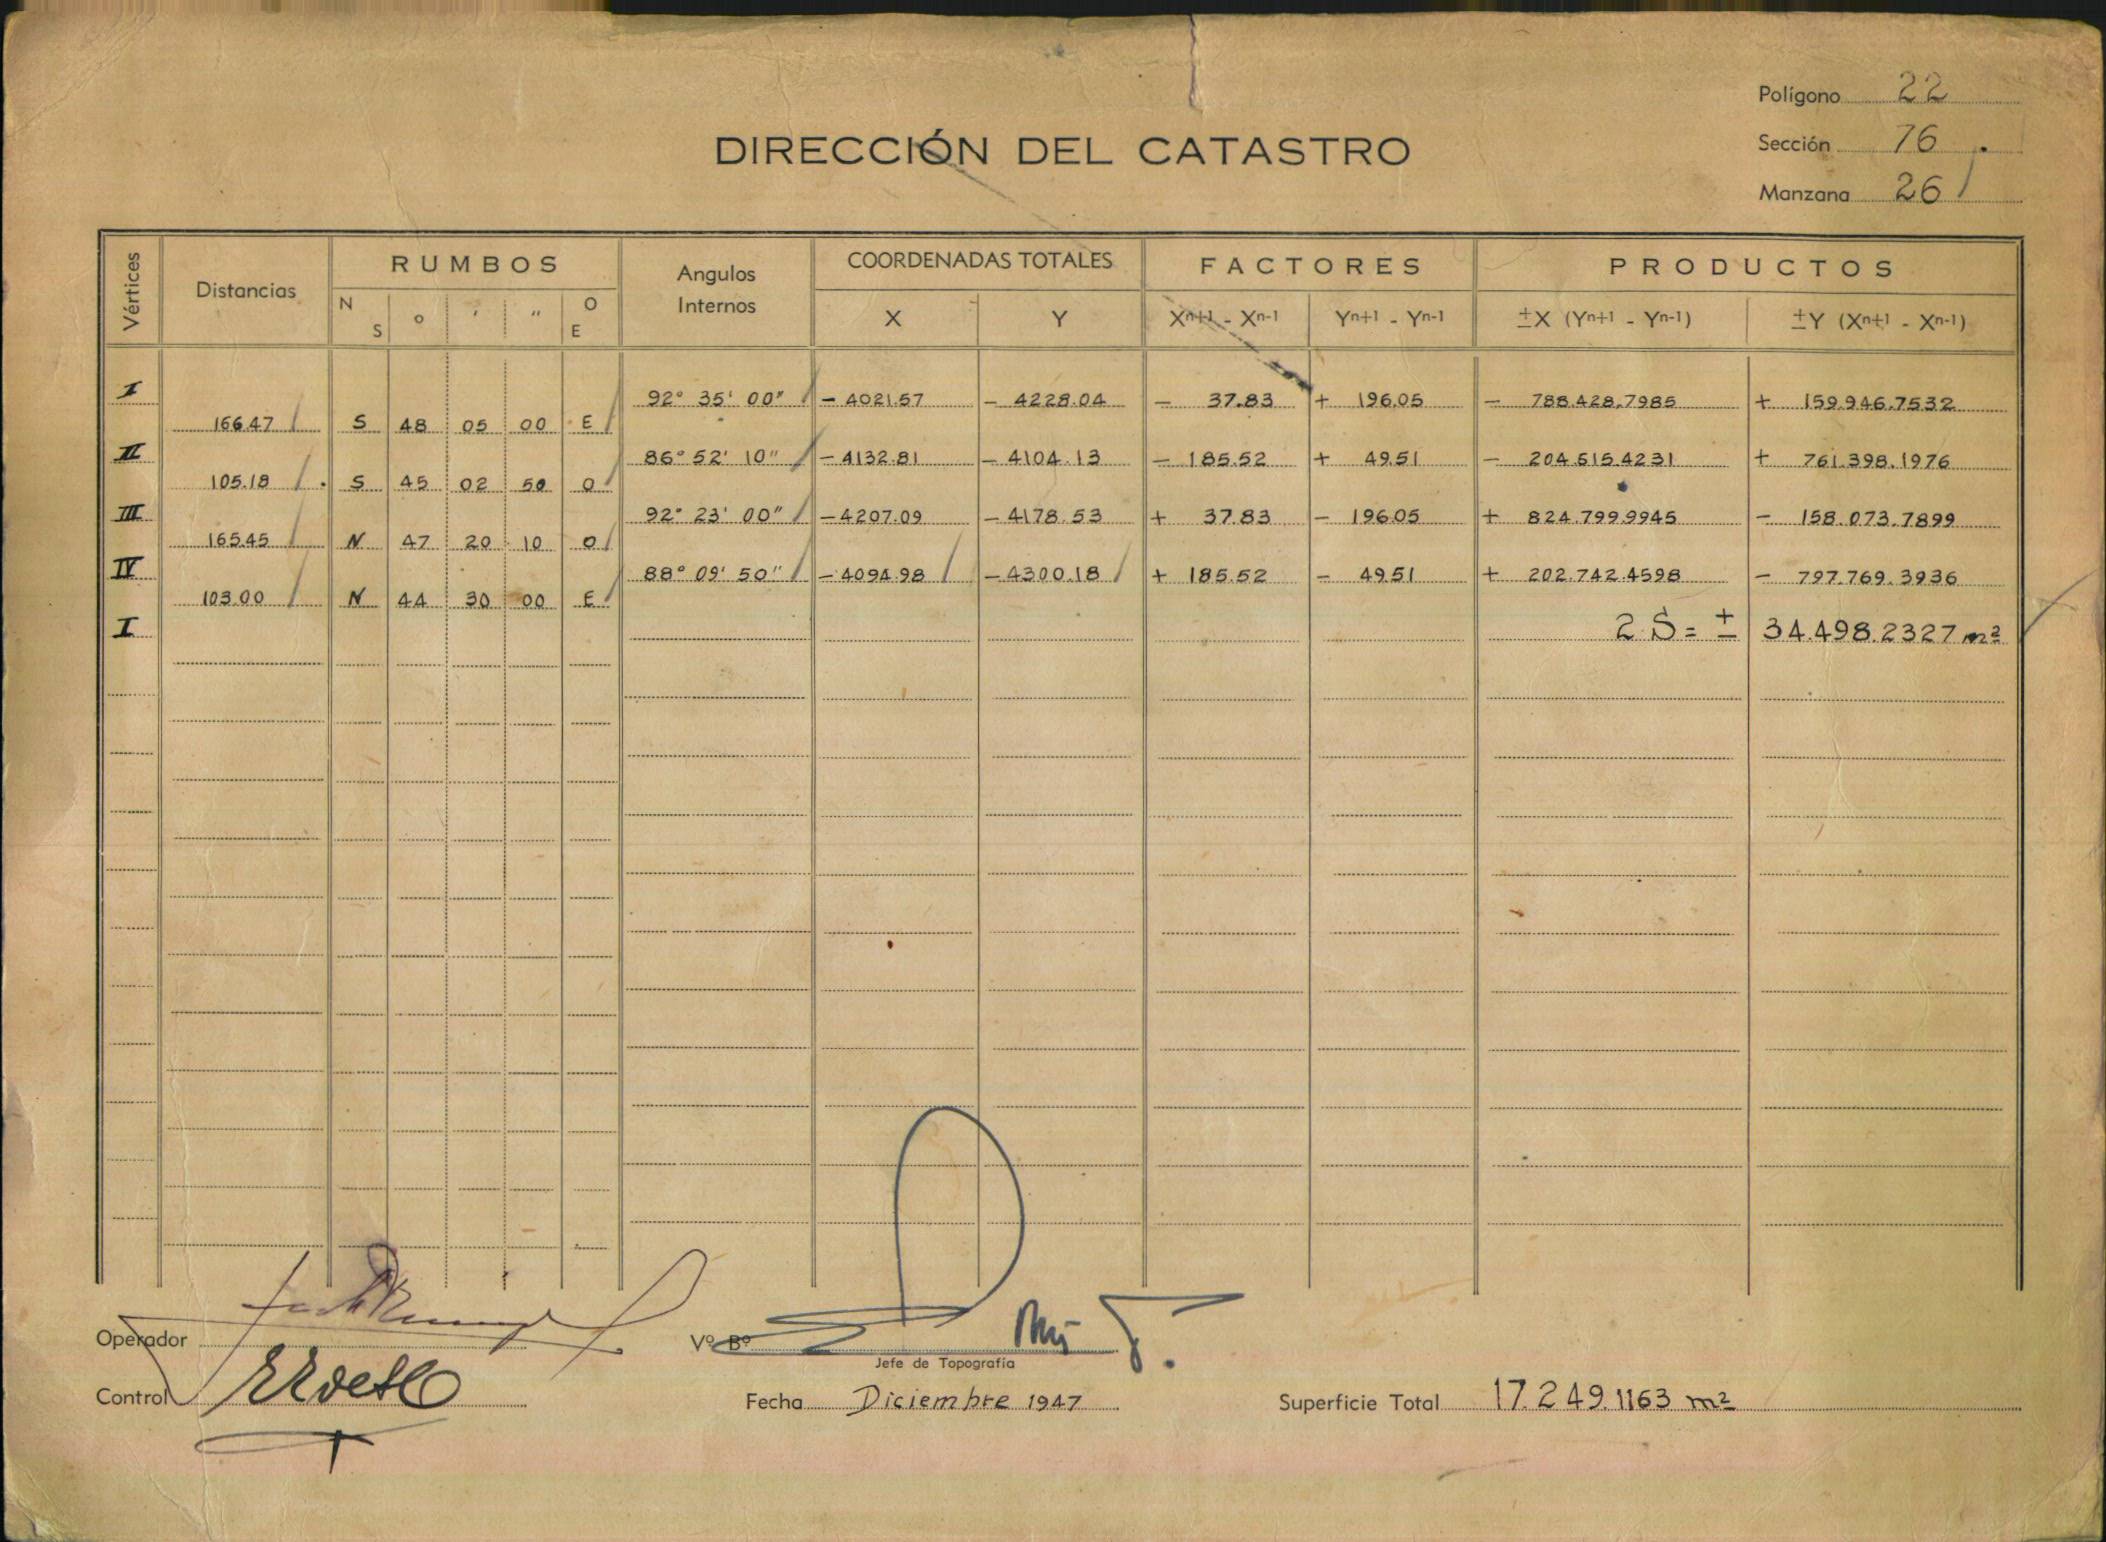 Polígono 22
DIRECCIÓN DEL CATASTRO
Sección 76
Manzana 26
Vértices Distancias RUMBOS Angulos Internos COORDENADAS TOTALES FACTORES PRODUCTOS
N S ° ' " O E X Y Xn+1 - Xn-1 Yn+1 - Yn-1 ±X (Yn+1 - Yn-1) ±Y (Xn+1 - Xn-1)
I 92° 35' 00" - 4021.57 - 4228.04 - 37.83 + 196.05 - 788.428.7985 + 159.946.7532
166.47 S 48 05 00 E
II 86° 52' 10" - 4132.81 - 4104.13 - 185.52 + 49.51 - 204.615.4231 + 761.398.1976
105.18 S 45 02 50 O
III 92° 23' 00" - 4207.09 - 4178.53 + 37.83 - 196.05 + 824.799.9945 - 158.073.7899
165.45 N 47 20 10 O
IV 88° 09' 50" - 4094.98 - 4300.18 + 185.52 - 49.51 + 202.742.4598 - 797.769.3936
103.00 N 44 30 00 E
I 2 S = ± 34.498.2327 m²
Operador
Vº Bº
Jefe de Topografía
Control
Fecha Diciembre 1947
Superficie Total 17.249.1163 m²